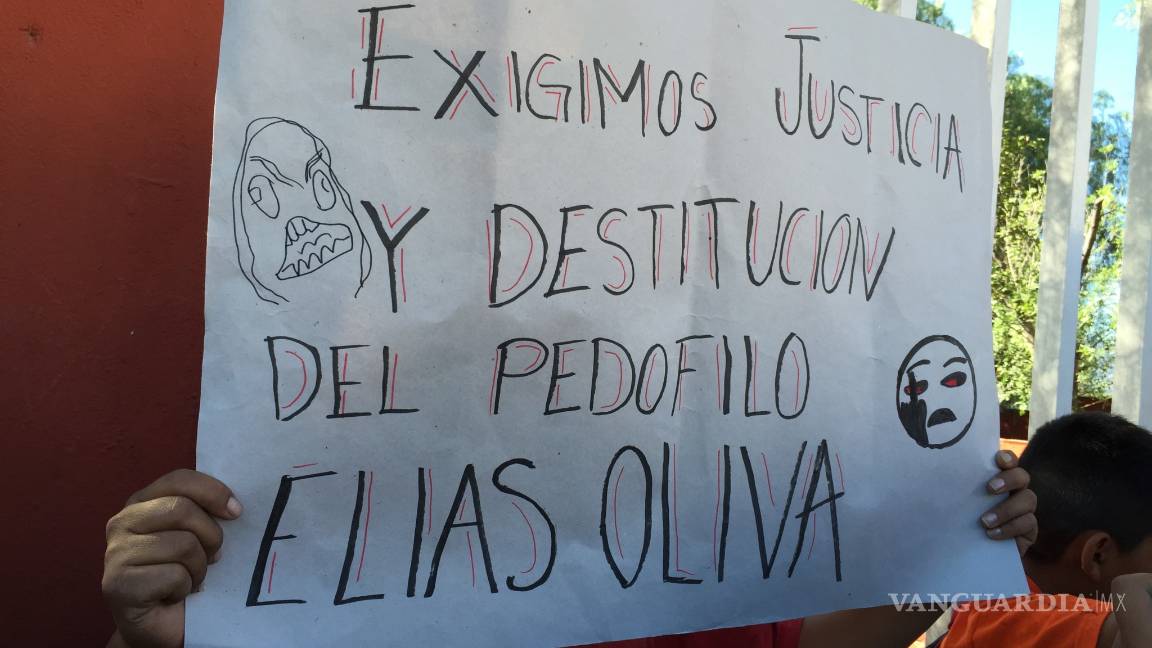 EXIGIMOS JUSTICIA
Y DESTITUCION
DEL PEDOFILO
ELIAS OLIVA
VANGUARDIA|MX